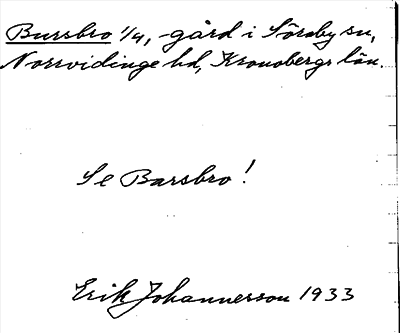 Bursbro 1/4, gård i Sörby sn,
Norrvidinge hd, Kronobergs län.
Se Barsbro!
Erik Johannesson 1933